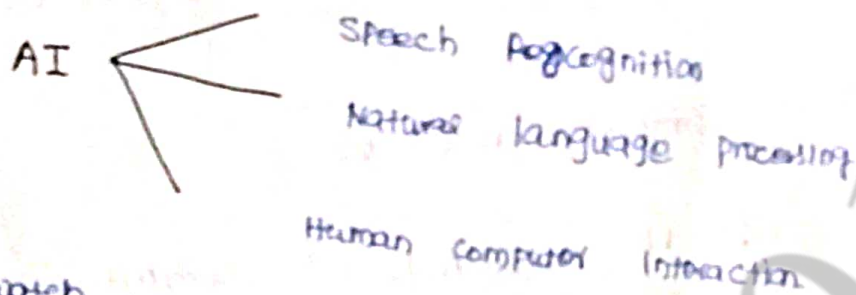 AI
Speech Pogcognition
Natural language processing
Human computer Interaction